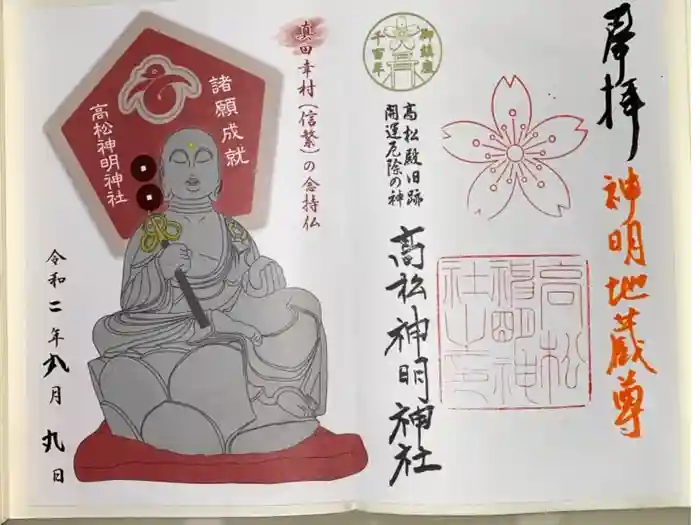 奉拝
神明地蔵尊
御鎮座
千百年
高松殿旧跡
開運厄除の神
高松神明神社
高松
神明神
社之印
真田幸村(信繁)の念持仏
諸願成就
高松神明神社
令和二年八月九日